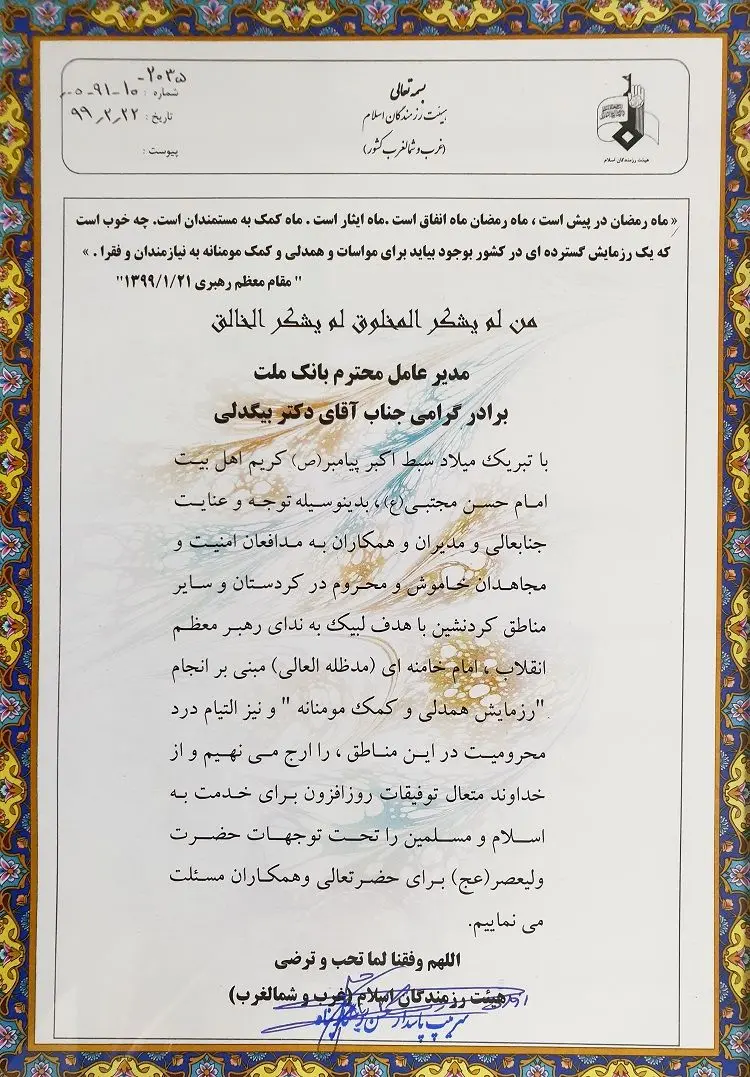 بسمه تعالی
هیئت رزمندگان اسلام
(غرب و شمالغرب کشور)
هیئت رزمندگان اسلام
شماره :
تاریخ : ۹۹٫۲٫۲۲
پیوست :
« ماه رمضان در پیش است ، ماه رمضان ماه انفاق است .ماه ایثار است . ماه کمک به مستمندان است. چه خوب است
که یک رزمایش گسترده ای در کشور بوجود بیاید برای مواسات و همدلی و کمک مومنانه به نیازمندان و فقرا . »
" مقام معظم رهبری ۱۳۹۹/۱/۲۱"
من لم یشکر المخلوق لم یشکر الخالق
مدیر عامل محترم بانک ملت
برادر گرامی جناب آقای دکتر بیگدلی
با تبریک میلاد سبط اکبر پیامبر(ص) کریم اهل بیت
امام حسن مجتبی(ع)، بدینوسیله توجه و عنایت
جنابعالی و مدیران و همکاران به مدافعان امنیت و
مجاهدان خاموش و محروم در کردستان و سایر
مناطق کردنشین با هدف لبیک به ندای رهبر معظم
انقلاب ، امام خامنه ای (مدظله العالی) مبنی بر انجام
"رزمایش همدلی و کمک مومنانه " و نیز التیام درد
محرومیت در این مناطق ، را ارج می نهیم و از
خداوند متعال توفیقات روزافزون برای خدمت به
اسلام و مسلمین را تحت توجهات حضرت
ولیعصر(عج) برای حضرتعالی وهمکاران مسئلت
می نماییم.
اللهم وفقنا لما تحب و ترضی
هیئت رزمندگان اسلام (غرب و شمالغرب)
سرتیپ پاسدار